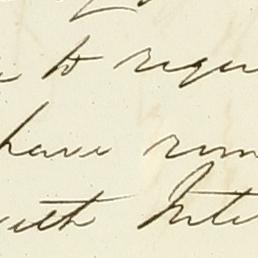 to requ
have
with Inte